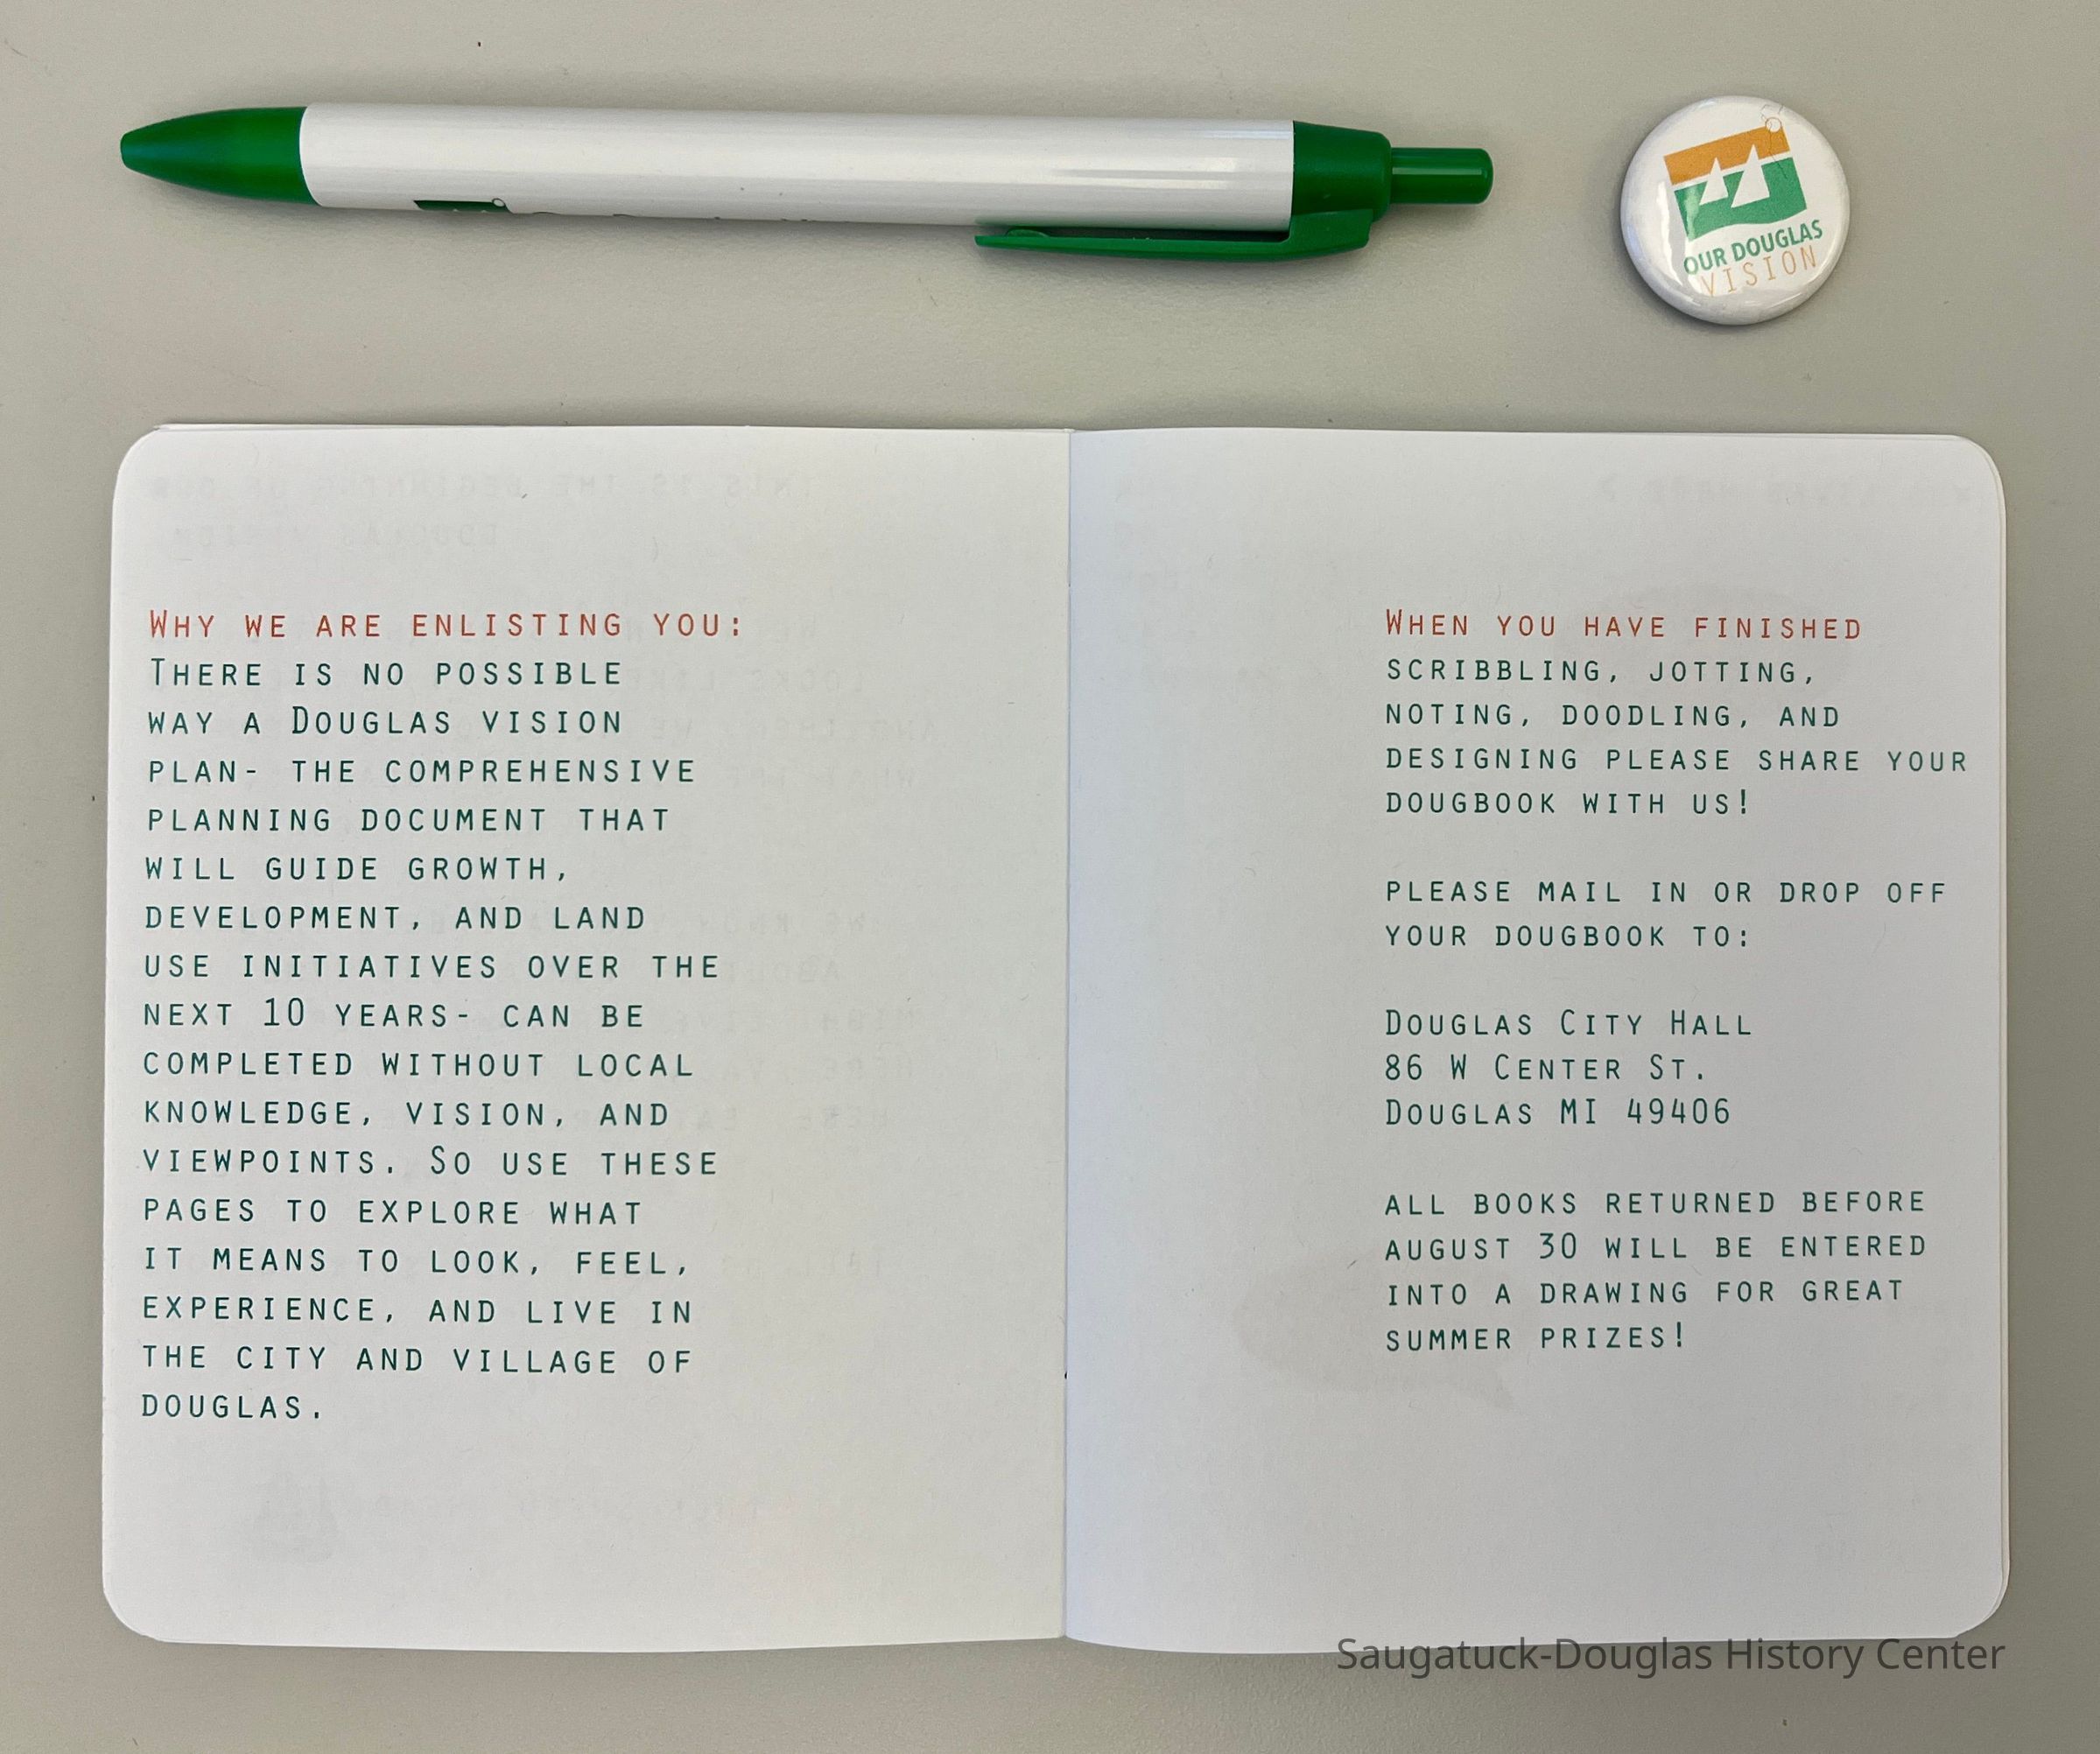 OUR DOUGLAS
VISION
Why we are enlisting you:
There is no possible
way a Douglas vision
plan- the comprehensive
planning document that
will guide growth,
development, and land
use initiatives over the
next 10 years- can be
completed without local
knowledge, vision, and
viewpoints. So use these
pages to explore what
it means to look, feel,
experience, and live in
the city and village of
douglas.
When you have finished
scribbling, jotting,
noting, doodling, and
designing please share your
dougbook with us!
please mail in or drop off
your dougbook to:
Douglas City Hall
86 W Center St.
Douglas MI 49406
all books returned before
august 30 will be entered
into a drawing for great
summer prizes!
Saugatuck-Douglas History Center